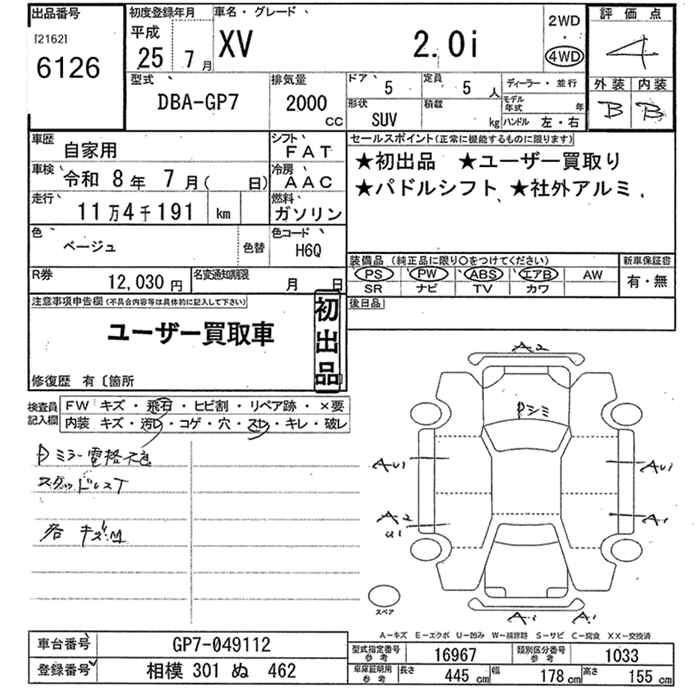 出品番号
[2162]
6126
初度登録年月
平成
25 7月
車名・グレード
XV 2.0i
2WD
・
4WD
評価点
4
外装 内装
B B
型式
DBA-GP7
排気量
2000
cc
ドア 5
定員 5 人
形状 SUV
積載 kg
ディーラー・並行
モデル年式 年
ハンドル 左・右
車歴 自家用
シフト FAT
車検 令和 8年 7月( 日)
冷房 AAC
走行 11万4千191 km
燃料 ガソリン
色 ベージュ
色替
色コード H6Q
R券 12,030円
名変通知期限 月 日
セールスポイント(正常に機能するものに限ります)
★初出品 ★ユーザー買取り
★パドルシフト ★社外アルミ
装備品(純正品に限り○をつけてください)
PS PW ABS エアB AW
SR ナビ TV カワ
新車保証書
有・無
後日品
注意事項申告欄(不具合内容等は具体的に記入して下さい)
ユーザー買取車
初出品
修復歴 有〔箇所
検査員記入欄
FW キズ・飛石・ヒビ割・リペア跡・×要
内装 キズ・汚レ・コゲ・穴・スレ・キレ・破レ
Pミラー電格不良
スタッドレスT
各 キズ.M
A2
Pシミ
AU1
AU1
A2
U1
A1
A1
A1
スペア
A-キズ E-エクボ U-凹み W-補修跡 S-サビ C-腐食 XX-交換済
車台番号 GP7-049112
登録番号 相模 301 ぬ 462
型式指定番号 参考 16967
類別区分番号 参考 1033
車庫証明用 参考 長さ 445cm 幅 178cm 高さ 155cm